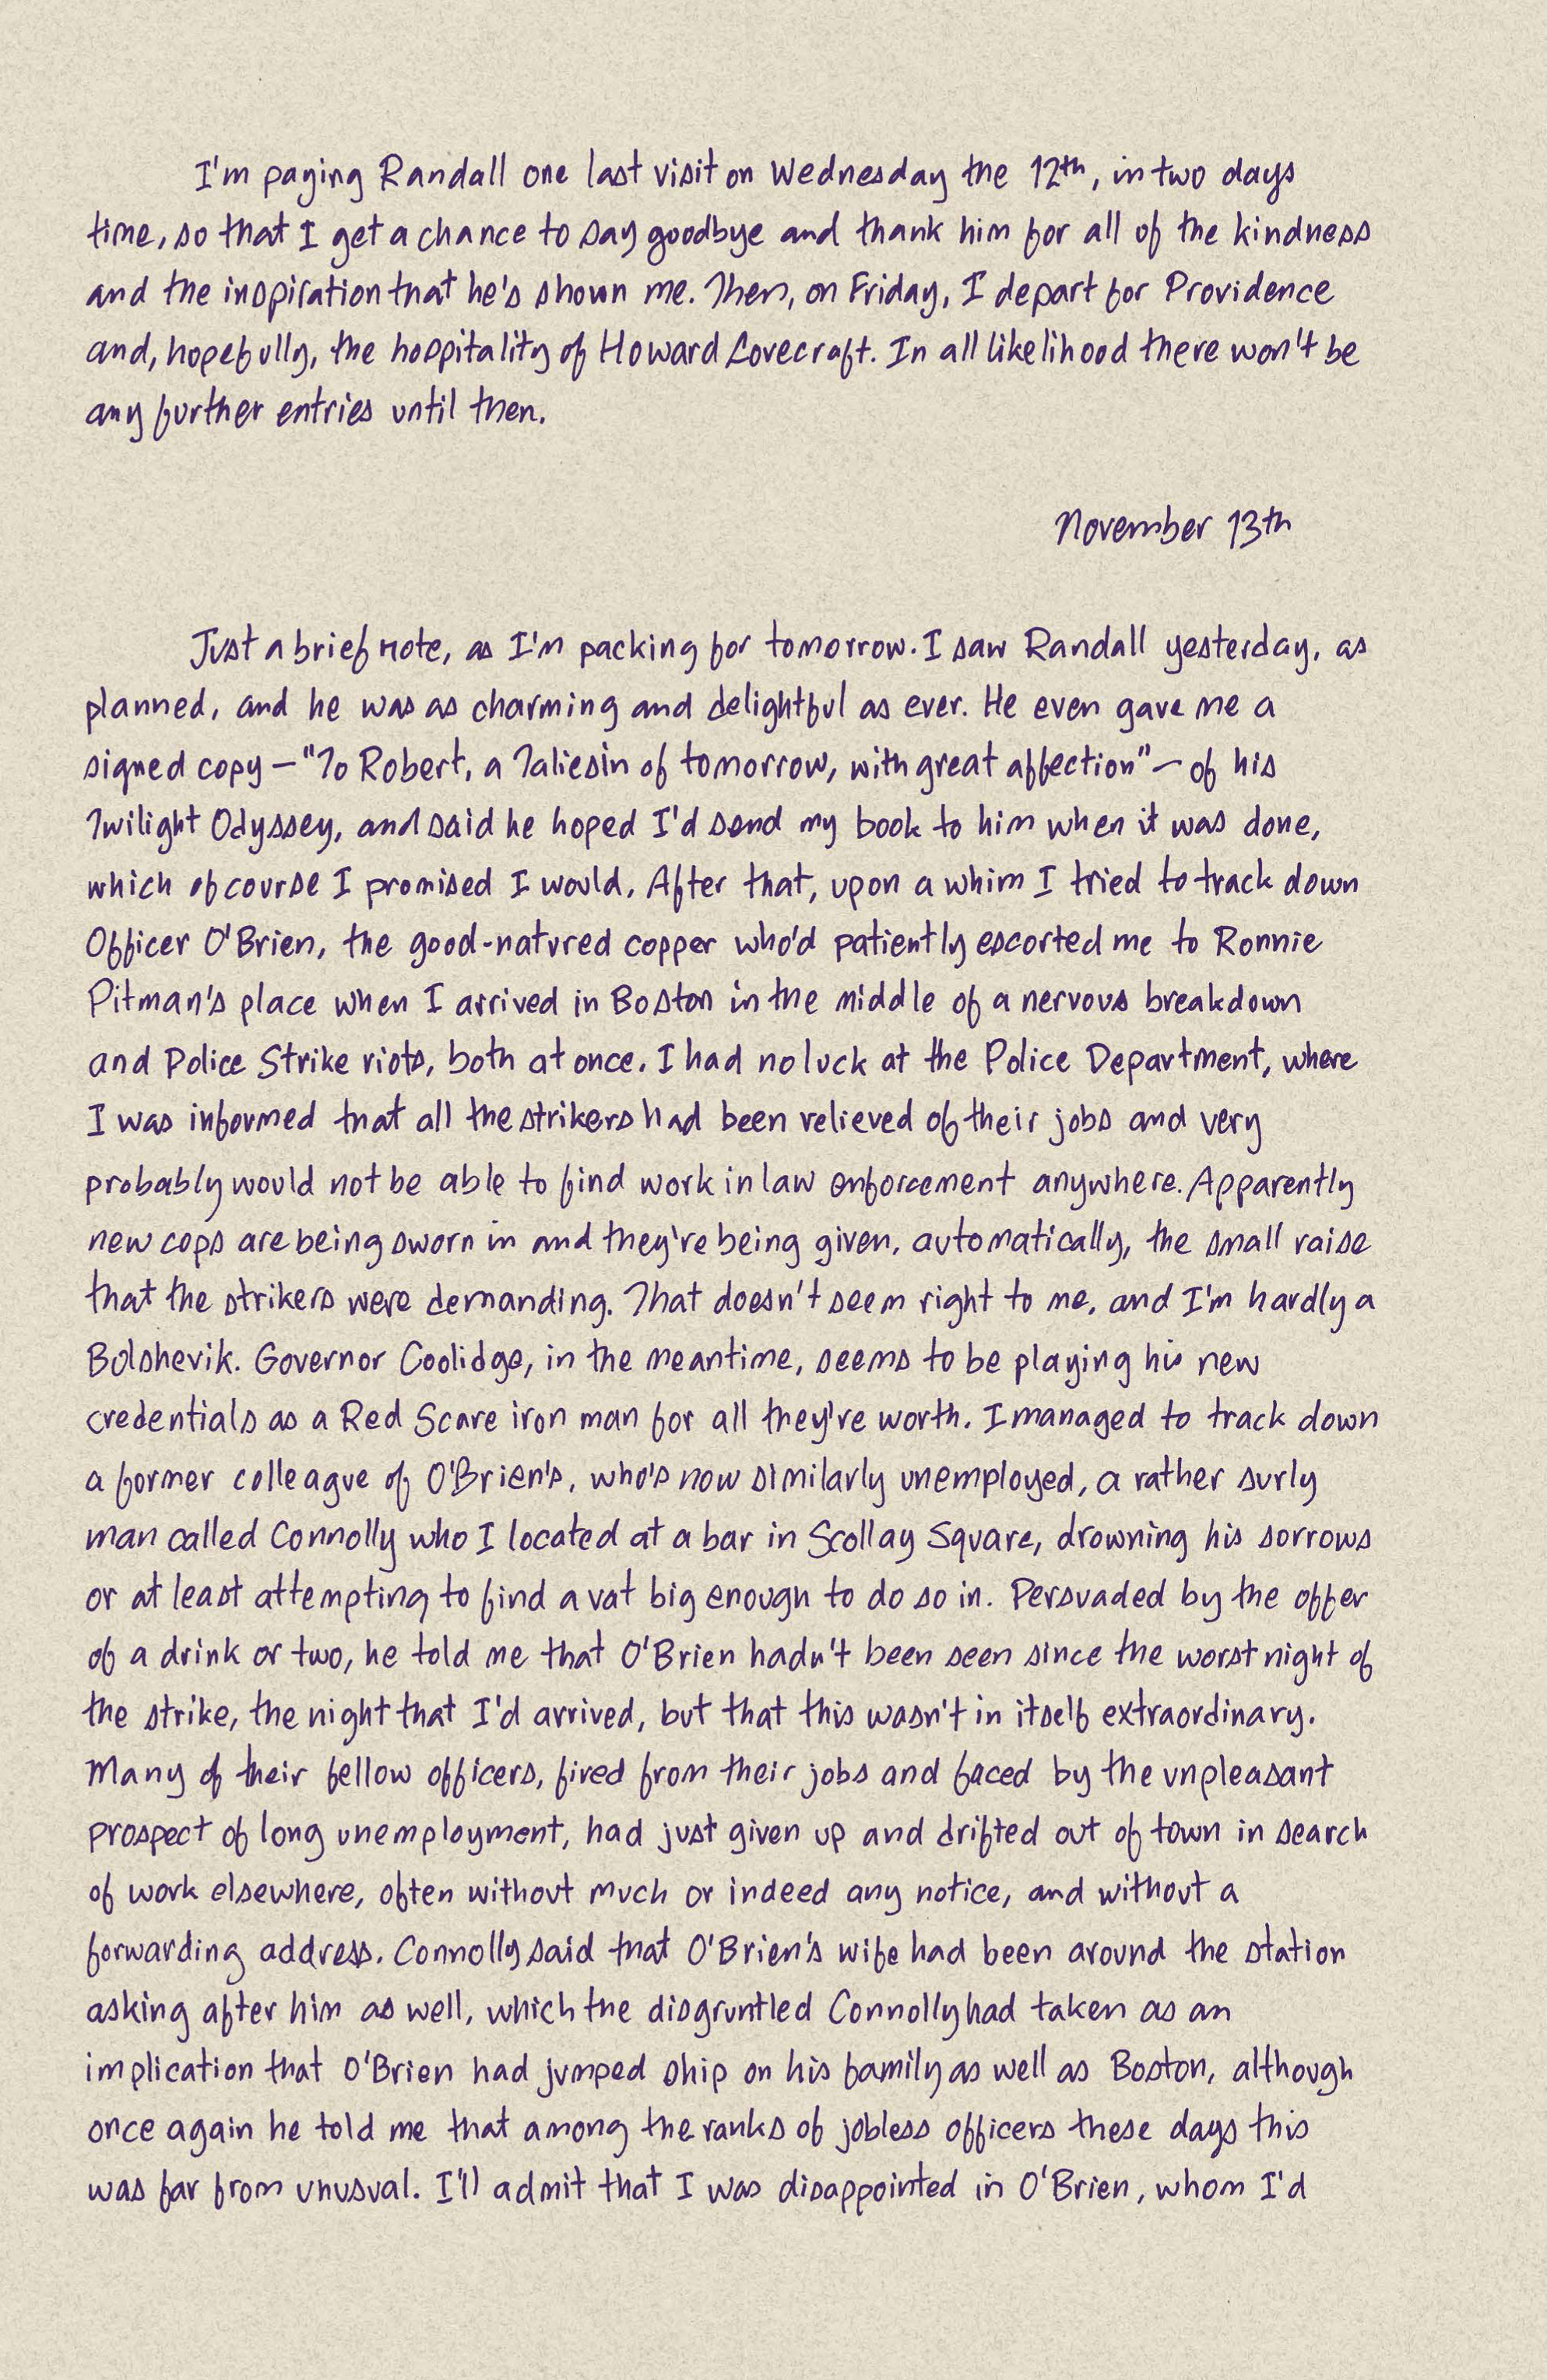 I'm paying Randall one last visit on Wednesday the 12th, in two days
time, so that I get a chance to say goodbye and thank him for all of the kindness
and the inspiration that he's shown me. Then, on Friday, I depart for Providence
and, hopefully, the hospitality of Howard Lovecraft. In all likelihood there won't be
any further entries until then.
November 13th
Just a brief note, as I'm packing for tomorrow. I saw Randall yesterday, as
planned, and he was as charming and delightful as ever. He even gave me a
signed copy – "To Robert, a Taliesin of tomorrow, with great affection" – of his
Twilight Odyssey, and said he hoped I'd send my book to him when it was done,
which of course I promised I would. After that, upon a whim I tried to track down
Officer O'Brien, the good-natured copper who'd patiently escorted me to Ronnie
Pitman's place when I arrived in Boston in the middle of a nervous breakdown
and Police Strike riots, both at once. I had no luck at the Police Department, where
I was informed that all the strikers had been relieved of their jobs and very
probably would not be able to find work in law enforcement anywhere. Apparently
new cops are being sworn in and they're being given, automatically, the small raise
that the strikers were demanding. That doesn't seem right to me, and I'm hardly a
Bolshevik. Governor Coolidge, in the meantime, seems to be playing his new
credentials as a Red Scare iron man for all they're worth. I managed to track down
a former colleague of O'Brien's, who's now similarly unemployed, a rather surly
man called Connolly who I located at a bar in Scollay Square, drowning his sorrows
or at least attempting to find a vat big enough to do so in. Persuaded by the offer
of a drink or two, he told me that O'Brien hadn't been seen since the worst night of
the strike, the night that I'd arrived, but that this wasn't in itself extraordinary.
Many of their fellow officers, fired from their jobs and faced by the unpleasant
prospect of long unemployment, had just given up and drifted out of town in search
of work elsewhere, often without much or indeed any notice, and without a
forwarding address. Connolly said that O'Brien's wife had been around the station
asking after him as well, which the disgruntled Connolly had taken as an
implication that O'Brien had jumped ship on his family as well as Boston, although
once again he told me that among the ranks of jobless officers these days this
was far from unusual. I'll admit that I was disappointed in O'Brien, whom I'd